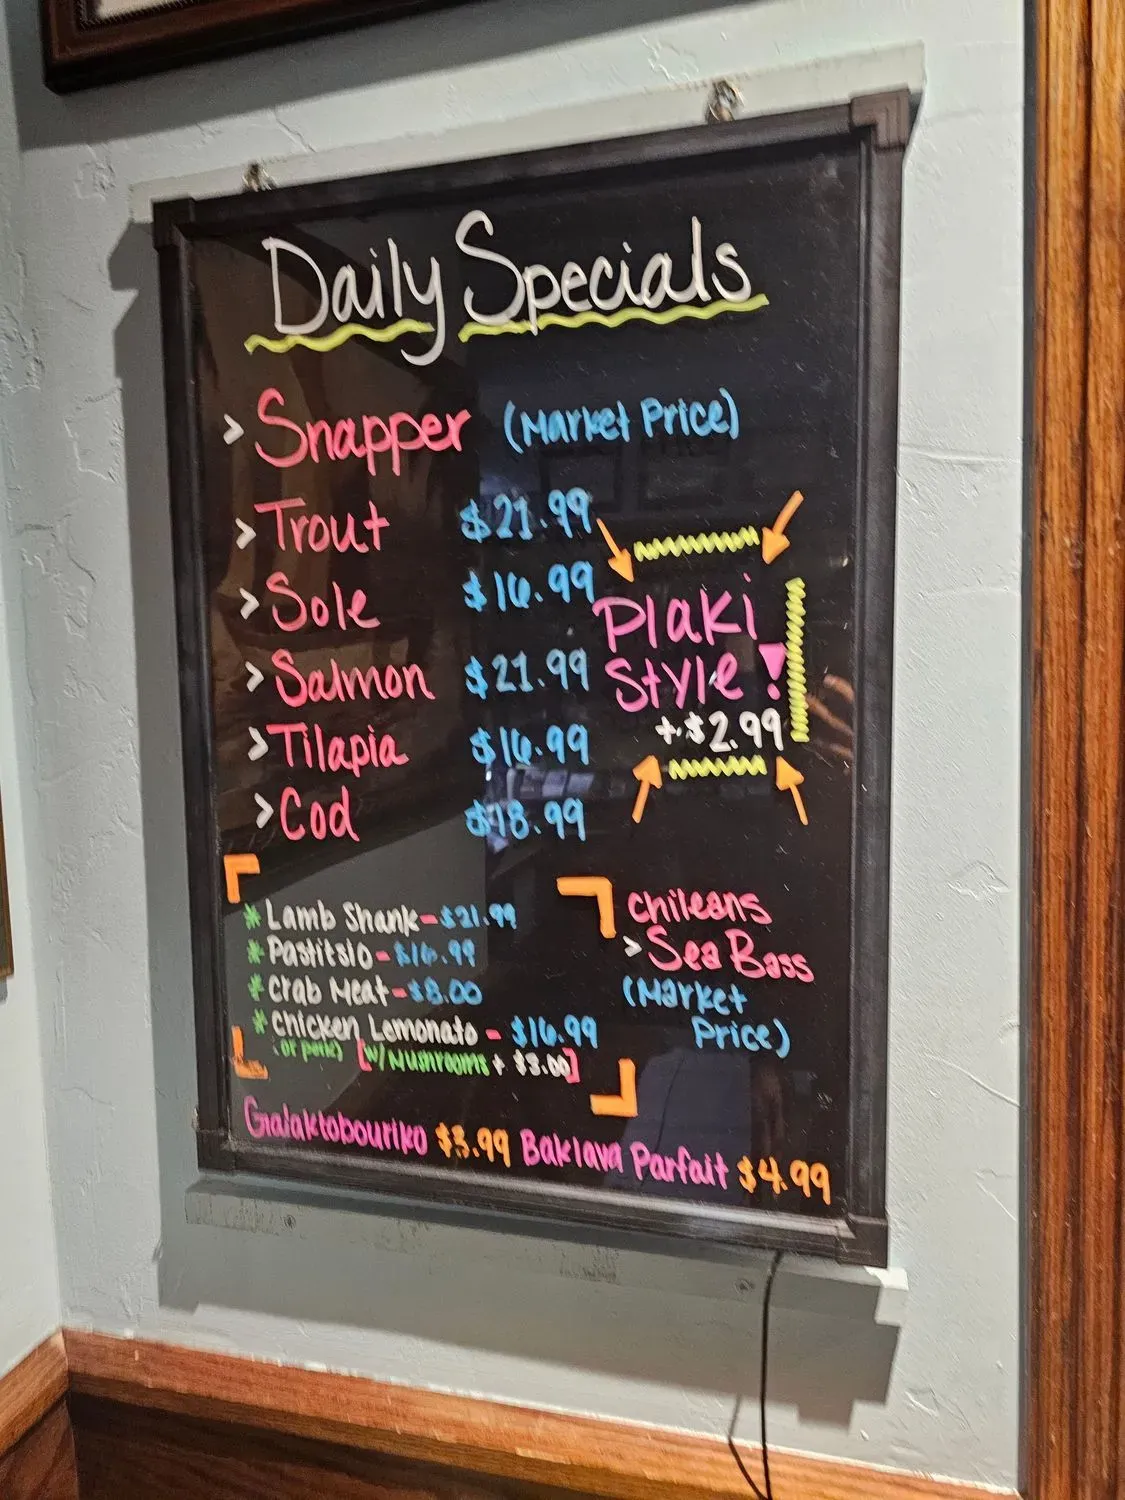 Daily Specials
> Snapper (Market Price)
> Trout $21.99
> Sole $16.99
> Salmon $21.99
> Tilapia $16.99
> Cod $18.99
Plaki
Style!
+ $2.99
* Lamb Shank - $21.99
* Pastitsio - $16.99
* Crab Meat - $8.00
* Chicken Lemonato - $16.99
(or pork) [w/ Mushrooms + $3.00]
Chileans
> Sea Bass
(Market
Price)
Galaktobouriko $3.99 Baklava Parfait $4.99